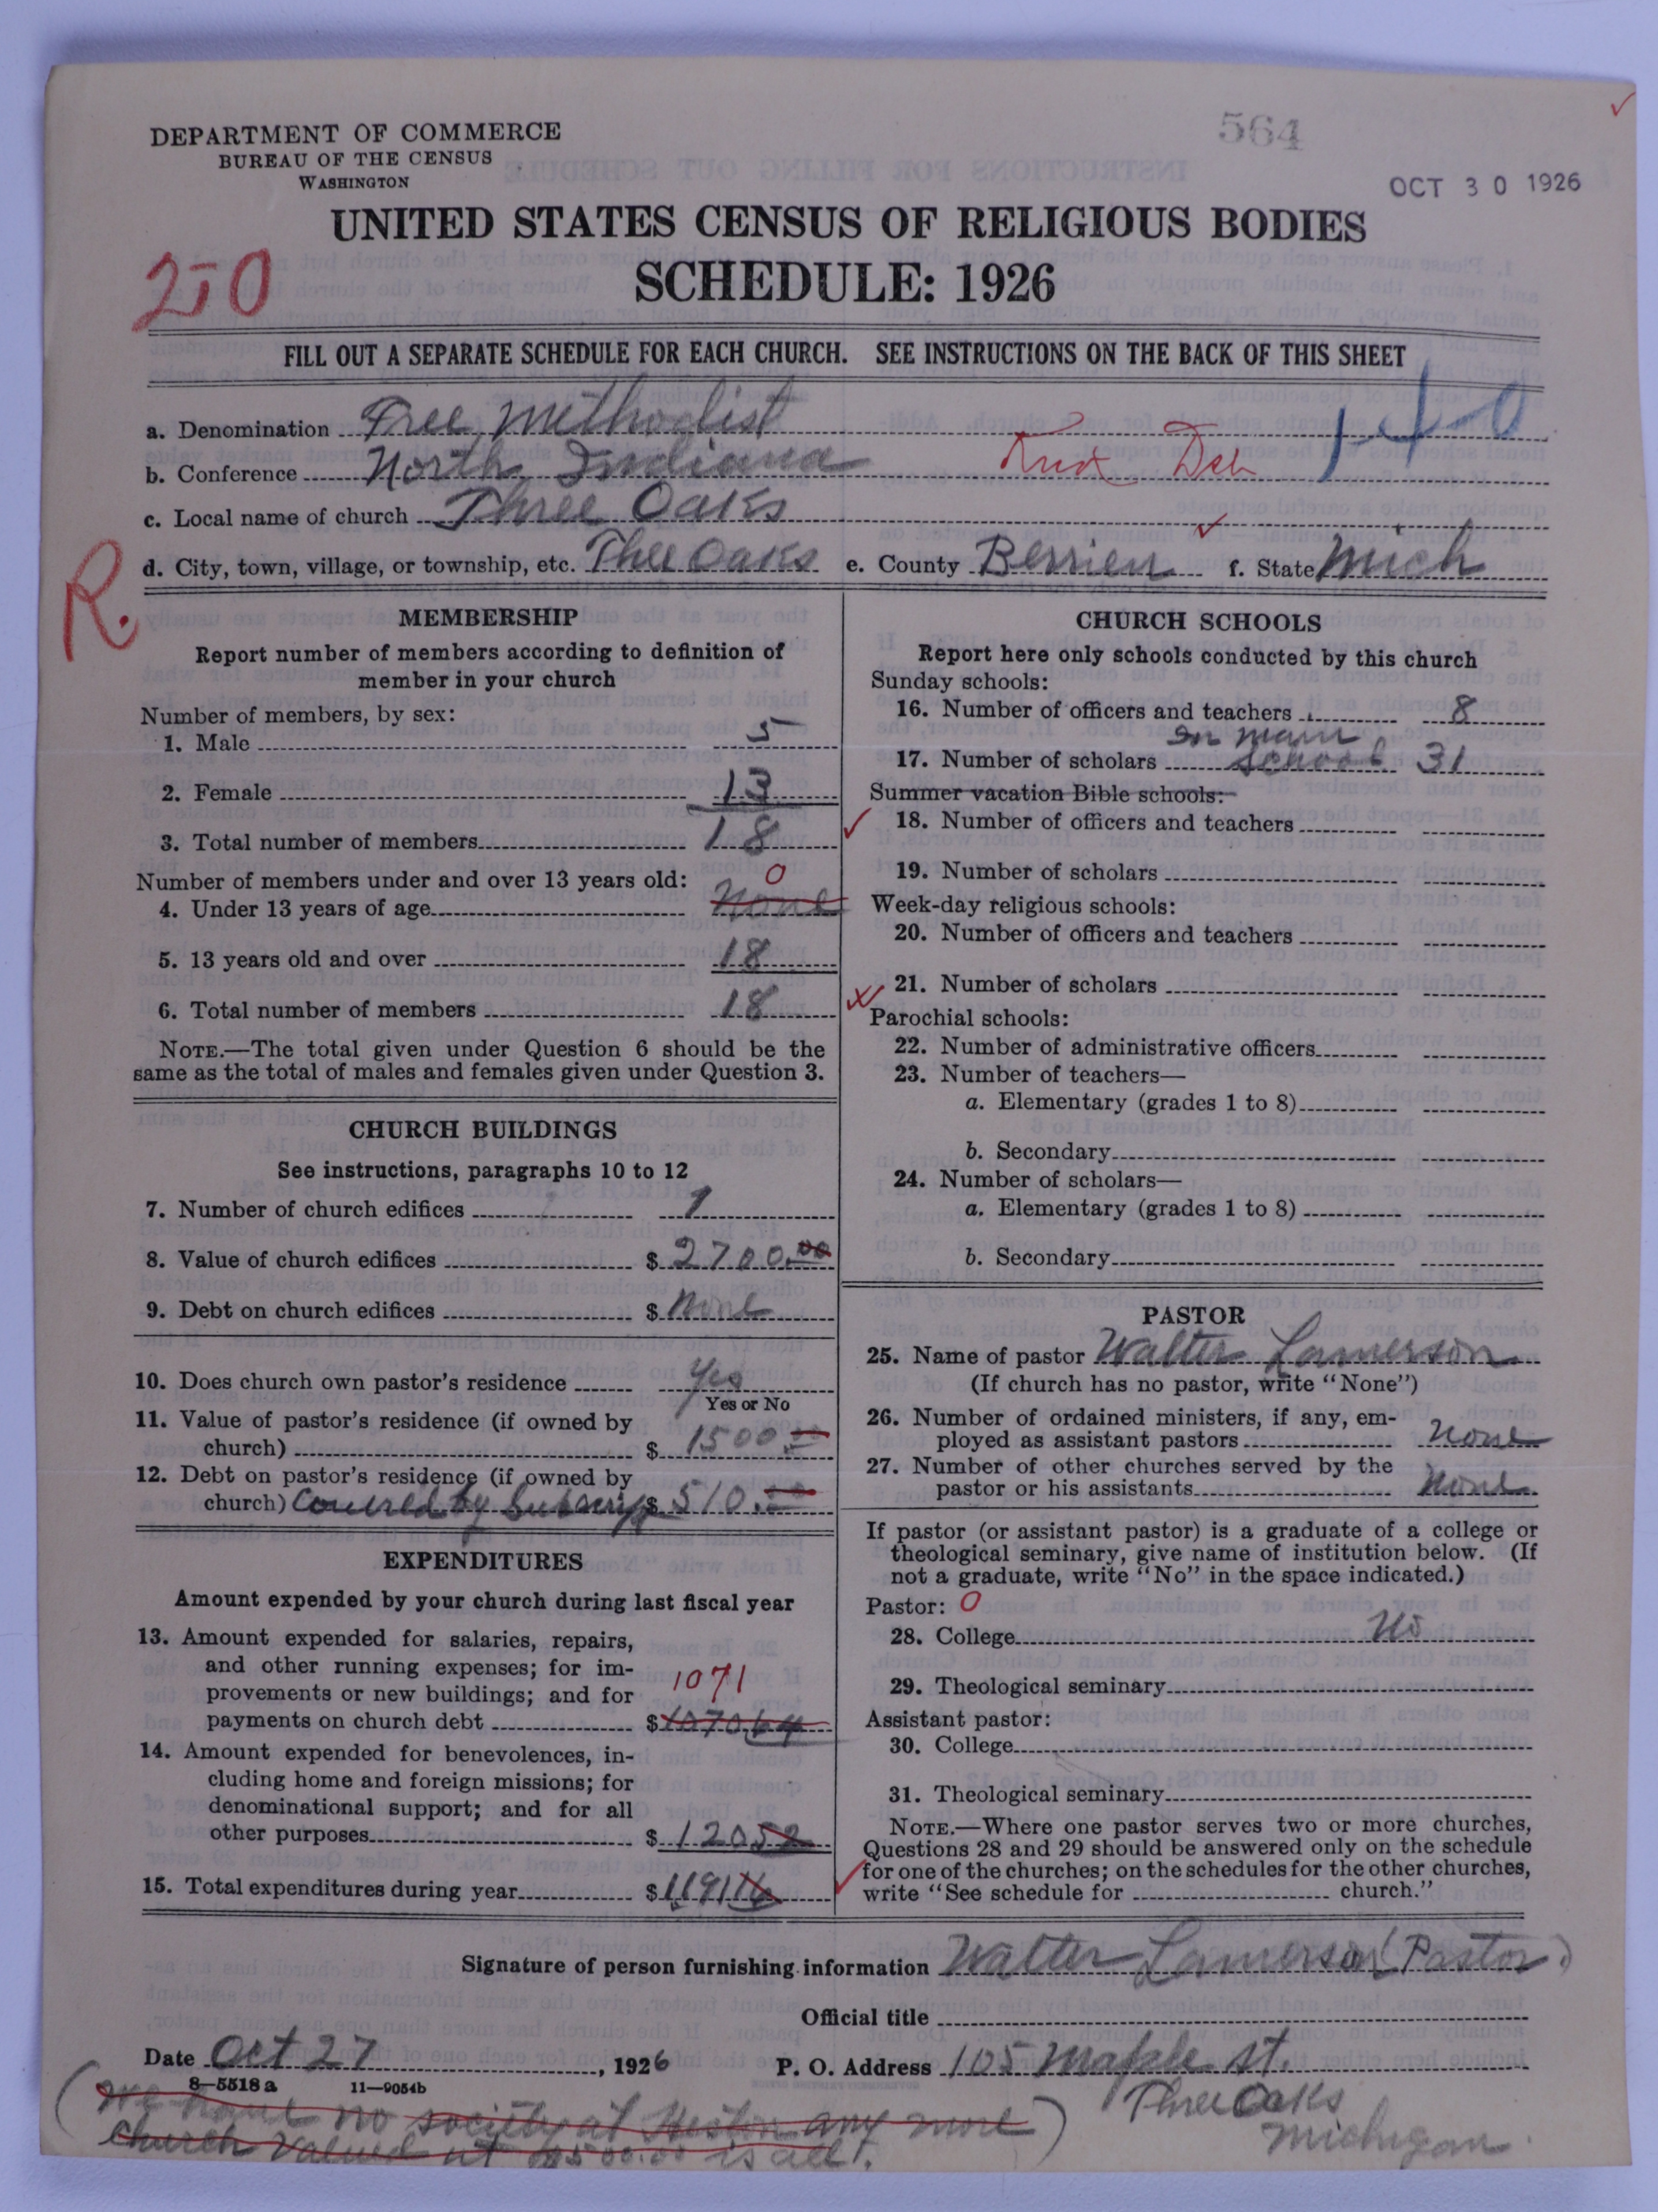 564
OCT 30 1926
DEPARTMENT OF COMMERCE
BUREAU OF THE CENSUS
WASHINGTON
UNITED STATES CENSUS OF RELIGIOUS BODIES
SCHEDULE: 1926
250
FILL OUT A SEPARATE SCHEDULE FOR EACH CHURCH. SEE INSTRUCTIONS ON THE BACK OF THIS SHEET
a. Denomination Free Methodist
b. Conference North Indiana
c. Local name of church Three Oaks
d. City, town, village, or township, etc. Thee Oaks e. County Berrien f. State Mich
R.
MEMBERSHIP
Report number of members according to definition of
member in your church
Number of members, by sex:
1. Male 5
2. Female 13
3. Total number of members 18
Number of members under and over 13 years old: 0
4. Under 13 years of age None
5. 13 years old and over 18
6. Total number of members 18
NOTE.—The total given under Question 6 should be the
same as the total of males and females given under Question 3.
CHURCH BUILDINGS
See instructions, paragraphs 10 to 12
7. Number of church edifices 1
8. Value of church edifices $ 2700.00
9. Debt on church edifices $ None
10. Does church own pastor's residence Yes
Yes or No
11. Value of pastor's residence (if owned by
church) $ 1500
12. Debt on pastor's residence (if owned by
church) Covered by Subscrip $ 510
EXPENDITURES
Amount expended by your church during last fiscal year
13. Amount expended for salaries, repairs,
and other running expenses; for im-
provements or new buildings; and for 1071
payments on church debt $ 1070.64
14. Amount expended for benevolences, in-
cluding home and foreign missions; for
denominational support; and for all
other purposes $ 120 52
15. Total expenditures during year $ 1191 16
CHURCH SCHOOLS
Report here only schools conducted by this church
Sunday schools:
16. Number of officers and teachers 8
In main
17. Number of scholars school 31
Summer vacation Bible schools:
18. Number of officers and teachers
19. Number of scholars
Week-day religious schools:
20. Number of officers and teachers
21. Number of scholars
Parochial schools:
22. Number of administrative officers
23. Number of teachers—
a. Elementary (grades 1 to 8)
b. Secondary
24. Number of scholars—
a. Elementary (grades 1 to 8)
b. Secondary
PASTOR
25. Name of pastor Walter Lamerson
(If church has no pastor, write "None")
26. Number of ordained ministers, if any, em-
ployed as assistant pastors None
27. Number of other churches served by the
pastor or his assistants None
If pastor (or assistant pastor) is a graduate of a college or
theological seminary, give name of institution below. (If
not a graduate, write "No" in the space indicated.)
Pastor: 0
28. College No
29. Theological seminary
Assistant pastor:
30. College
31. Theological seminary
NOTE.—Where one pastor serves two or more churches,
Questions 28 and 29 should be answered only on the schedule
for one of the churches; on the schedules for the other churches,
write "See schedule for church."
Signature of person furnishing information Walter Lamerson (Pastor)
Official title
Date Oct 27, 1926 P. O. Address 105 Maple st.
8—5518 a 11—9054b
Three Oaks
Michigan
(We have no society at Heston any more)
Church Valued at is all.